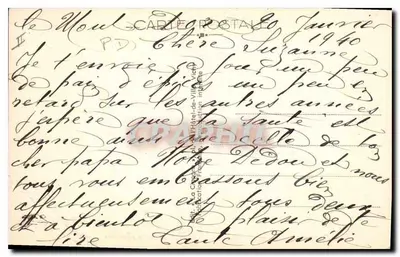 Le Mont 20 Janvier
CARTE POSTALE
Chère Suzanne 1940
Je t'envoie ce jour un peu
de pain d'épice un peu en
retard sur les autres années
j'espère que ta santé est
bonne ainsi que celle de ton
cher papa Votre et nous
tous vous embrassons bien
affectueusement tous deux
et à bientôt le plaisir de te
lire Tante Amélie